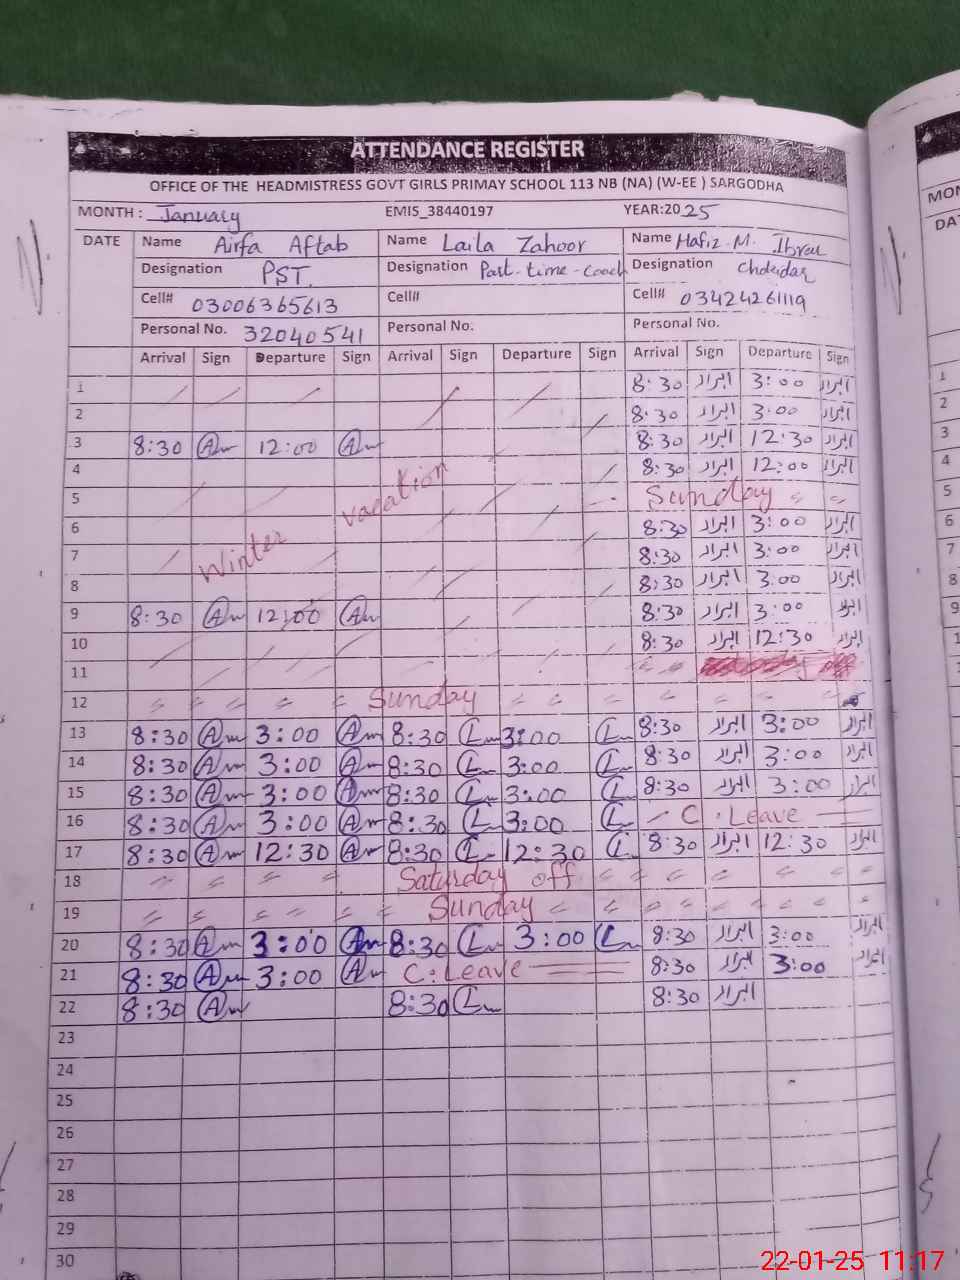 ATTENDANCE REGISTER
OFFICE OF THE HEADMISTRESS GOVT GIRLS PRIMAY SCHOOL 113 NB (NA) (W-EE ) SARGODHA
MONTH : January EMIS_38440197 YEAR:2025
DATE Name Airfa Aftab Name Laila Zahoor Name Hafiz. M.
Designation PST. Designation Part-time-coach Designation
Cell# 03006365613 Cell# Cell# 03424261119
Personal No. 32040541 Personal No. Personal No.
Arrival Sign Departure Sign Arrival Sign Departure Sign Arrival Sign Departure Sign
1 8:30 ابرار 3:00 ابرار
2 8:30 ابرار 3:00 ابرار
3 8:30 Am 12:00 Am 8:30 ابرار 12:30 ابرار
4 8:30 ابرار 12:00 ابرار
5 Sunday
6 8:30 ابرار 3:00 ابرار
Winter vacation
7 8:30 ابرار 3:00 ابرار
8 8:30 ابرار 3:00 ابرار
9 8:30 Am 12:00 Am 8:30 ابرار 3:00 ابرار
10 8:30 ابرار 12:30 ابرار
11
12 Sunday
13 8:30 Am 3:00 Am 8:30 L 3:00 L 8:30 ابرار 3:00 ابرار
14 8:30 Am 3:00 Am 8:30 L 3:00 L 8:30 ابرار 3:00 ابرار
15 8:30 Am 3:00 Am 8:30 L 3:00 L 8:30 ابرار 3:00 ابرار
16 8:30 Am 3:00 Am 8:30 L 3:00 L C. Leave
17 8:30 Am 12:30 Am 8:30 L 12:30 L 8:30 ابرار 12:30 ابرار
18 Saturday off
19 Sunday
20 8:30 Am 3:00 Am 8:30 L 3:00 L 8:30 ابرار 3:00 ابرار
21 8:30 Am 3:00 Am C. Leave 8:30 ابرار 3:00 ابرار
22 8:30 Am 8:30 L 8:30 ابرار
23
24
25
26
27
28
29
30
MON
DAT
1
2
3
4
5
6
7
8
9
1
22-01-25 11:17